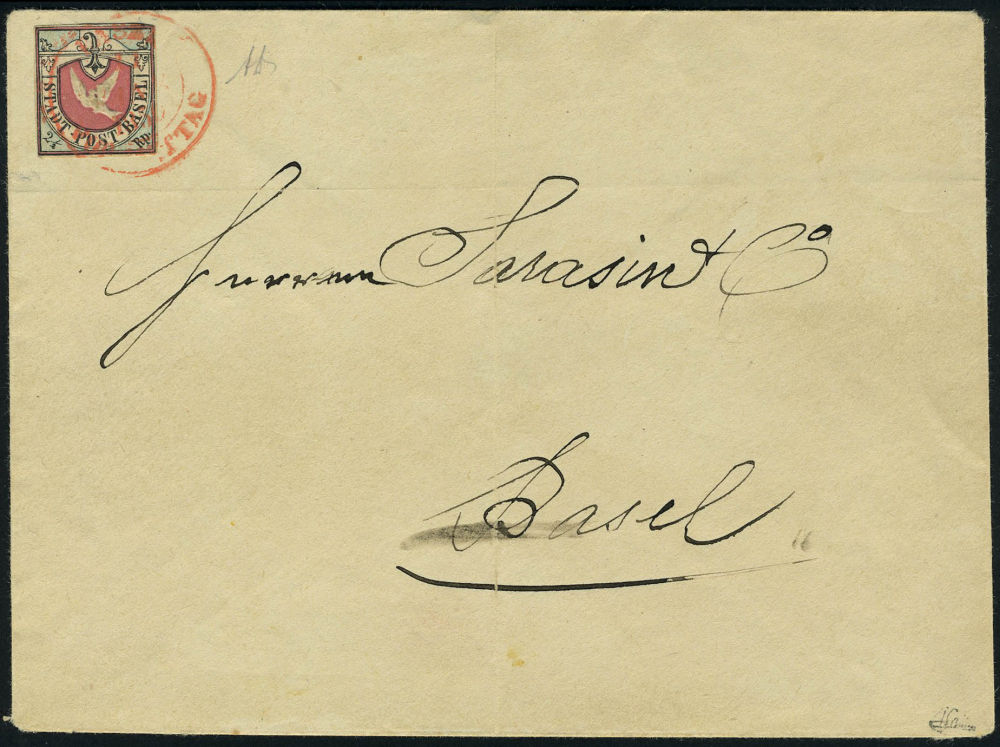 STADT·POST·BASEL
2½ Rp.
TAG
Herren Sarasin & Co
Basel